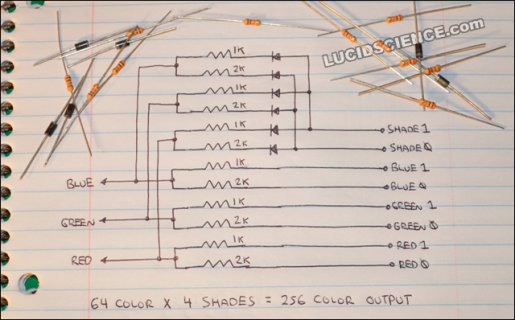 LUCIDSCIENCE.com
1K
2K
1K
2K
1K
SHADE 1
2K
SHADE 0
1K
BLUE 1
BLUE
2K
BLUE 0
1K
GREEN 1
GREEN
2K
GREEN 0
1K
RED 1
RED
2K
RED 0
64 COLOR X 4 SHADES = 256 COLOR OUTPUT